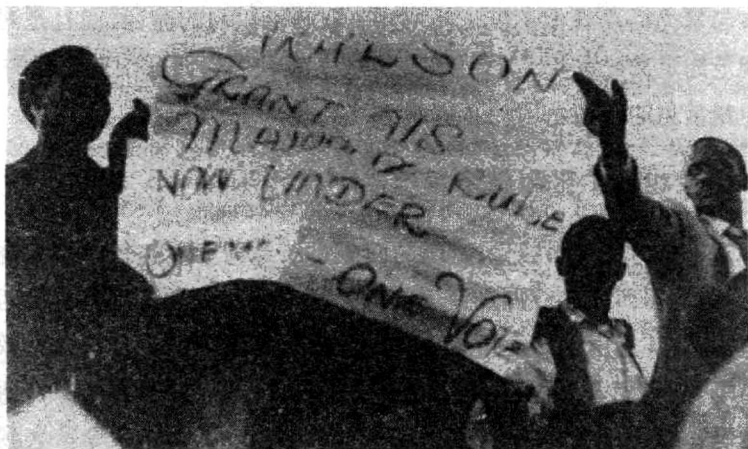 WILSON
GRANT US
MAJORITY RULE
NOW UNDER
ONE
- ONE VOTE